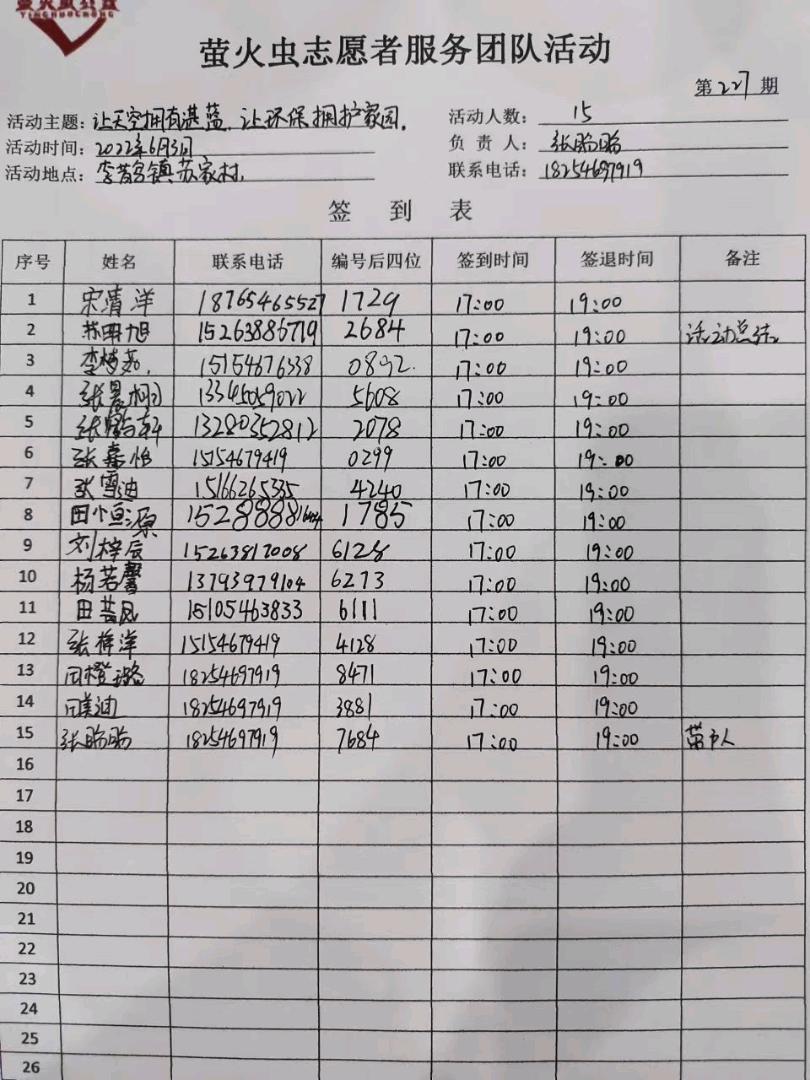 萤火虫公益
YINGHUOCHONG
萤火虫志愿者服务团队活动
第227期
活动主题：让天空拥有湛蓝，让环保拥护家园。 活动人数：15
活动时间：2022年6月3日 负责人：张盼盼
活动地点：李苦禅镇苏家村. 联系电话：18254697919
签 到 表
序号 姓名 联系电话 编号后四位 签到时间 签退时间 备注
1 宋清洋 18765465527 1729 17:00 19:00
2 旭 15263886719 2684 17:00 19:00 活动总结
3 李梦茹 15154676338 0892. 17:00 19:00
4 张晨桐 13345059022 5608 17:00 19:00
5 张轩 13280352812 2078 17:00 19:00
6 张嘉怡 15154679419 0299 17:00 19:00
7 张雪迪 15166265335 4240 17:00 19:00
8 田恒源 1785 17:00 19:00
9 刘梓辰 15263817008 6128 17:00 19:00
10 杨若馨 13793979104 6273 17:00 19:00
11 田芸凤 15105463833 6111 17:00 19:00
12 张梓洋 15154679419 4128 17:00 19:00
13 闫橙璐 18254697919 8471 17:00 19:00
14 闫美迪 18254697919 3881 17:00 19:00
15 张盼盼 18254697919 7684 17:00 19:00 带队人
16
17
18
19
20
21
22
23
24
25
26